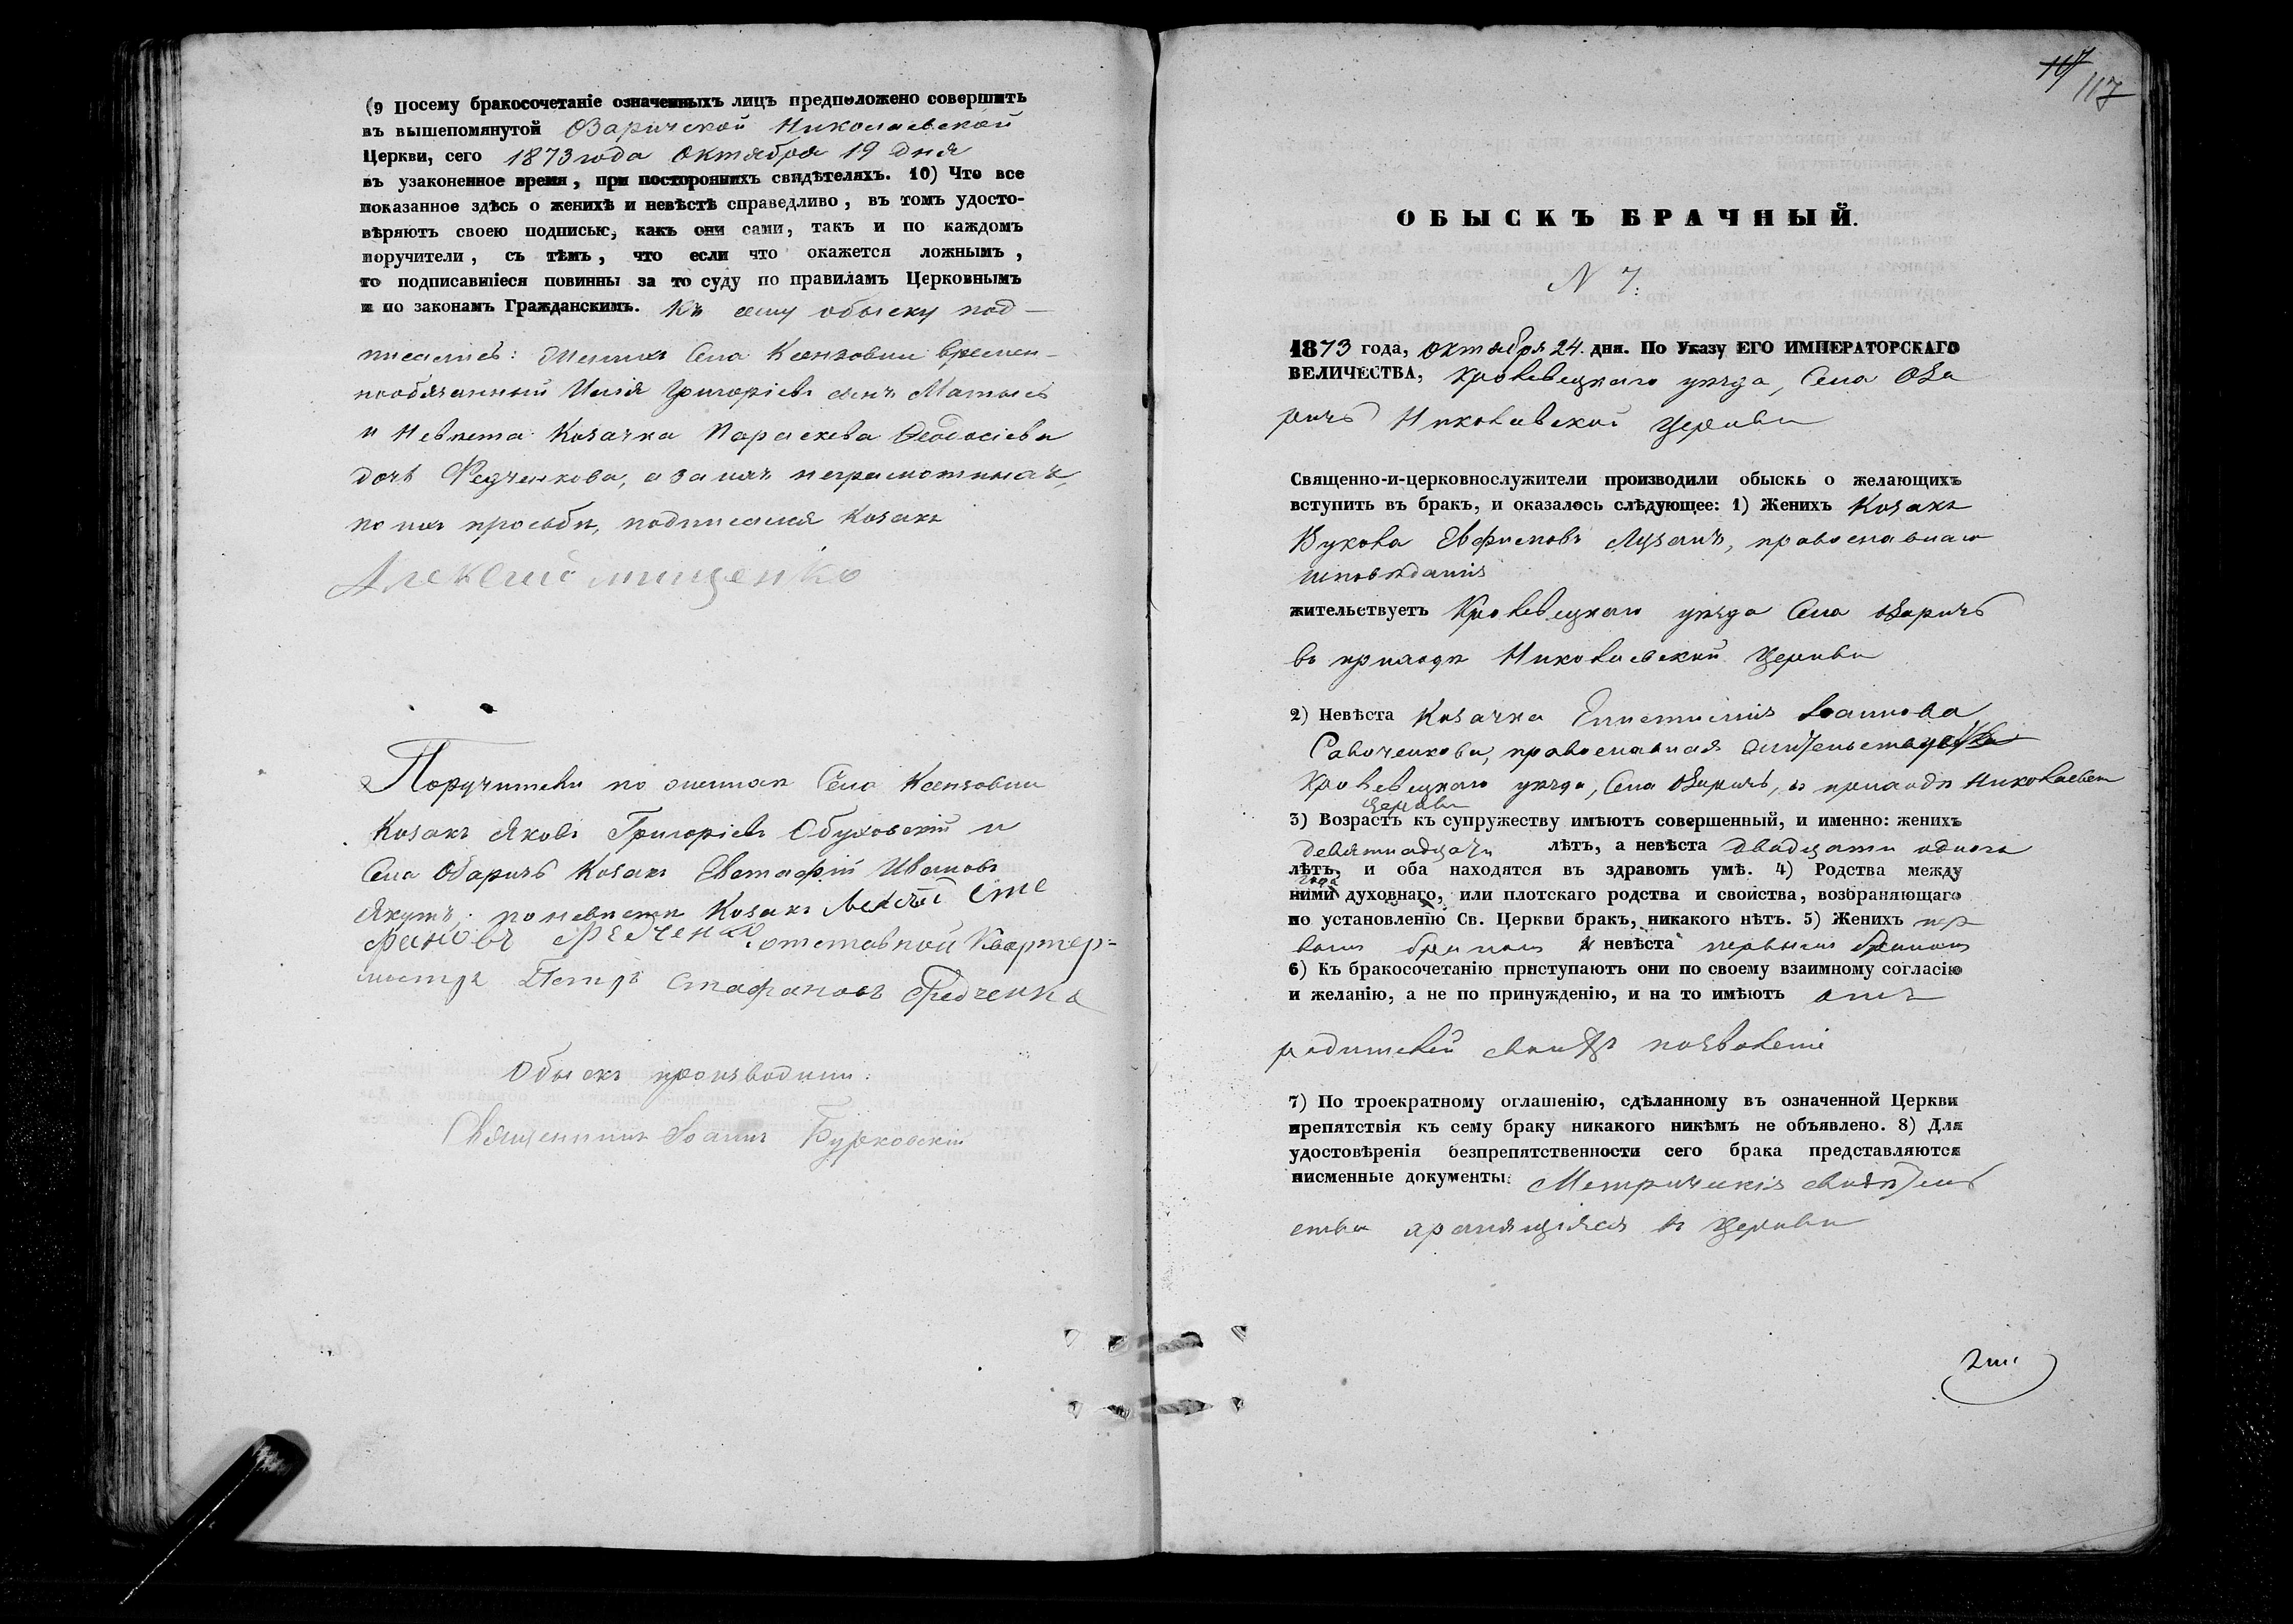 (9 Посему бракосочетаніе означенныхъ лицъ предположено совершить
въ вышепомянутой Озаричской Николаевской
Церкви, сего 1873 года Октября 19 дня
въ узаконенное время, при постороннихъ свидѣтеляхъ. 10) Что все
показанное здѣсь о женихѣ и невѣстѣ справедливо, въ томъ удосто-
вѣряютъ своею подписью, какъ они сами, такъ и по каждомъ
поручители, съ тѣмъ, что если что окажется ложнымъ,
то подписавшіеся повинны за то суду по правиламъ Церковнымъ
и по законамъ Гражданскимъ. Къ сему обыску под-
писались: Женихъ Села Ксензовки времен-
нообязанный Илія Григоріевъ сынъ
и Невѣста Козачка Параскева Ѳеодосіева
дочь Федченкова, а за ихъ неграмотныхъ,
по ихъ просьбѣ, подписался Козакъ
Алексей мищенко
Поручители по женихѣ Села Ксензовки
Козакъ Яковъ Григоріевъ Обуховскій и
Села Озаричъ Козакъ Евстафій Ивановъ
Якутъ; по невѣстѣ Козакъ Алексей Сте
фановъ Федченко отставной Квартер-
мистръ Петръ Стефановъ Федченко
Обыскъ производили:
Священникъ Іоаннъ Бурковскій
117
ОБЫСКЪ БРАЧНЫЙ.
N 7.
1873 года, Октября 24 дня. По Указу ЕГО ИМПЕРАТОРСКАГО
ВЕЛИЧЕСТВА, Кролевецкаго уѣзда, Села Оза
ричъ Николаевской Церкви
Священно-и-церковнослужители производили обыскъ о желающихъ
вступить въ бракъ, и оказалось слѣдующее: 1) Женихъ Козакъ
Евфимовъ православнаго
исповѣданія
жительствуетъ Кролевецкаго уѣзда Села Озаричъ
въ приходѣ Николаевской Церкви
2) Невѣста Козачка Іоаннова
Савоченкова, православная
Кролевецкаго уѣзда, Села Озаричъ, въ приходѣ Николаевской
Церкви
3) Возрастъ къ супружеству имѣютъ совершенный, и именно: женихъ
девятнадцати лѣтъ, а невѣста двадцати одного
года
лѣтъ, и оба находятся въ здравомъ умѣ. 4) Родства между
ними духовнаго, или плотскаго родства и свойства, возбраняющаго
по установленію Св. Церкви бракъ, никакого нѣтъ. 5) Женихъ пер
вымъ бракомъ и невѣста первымъ бракомъ
6) Къ бракосочетанію приступаютъ они по своему взаимному согласію
и желанію, а не по принужденію, и на то имѣютъ отъ
родителей своихъ позволеніе
7) По троекратному оглашенію, сдѣланному въ означенной Церкви
препятствія къ сему браку никакого никѣмъ не объявлено. 8) Для
удостовѣренія безпрепятственности сего брака представляются
писменные документы: Метрическія свидѣтель
ства хранящіяся въ Церкви